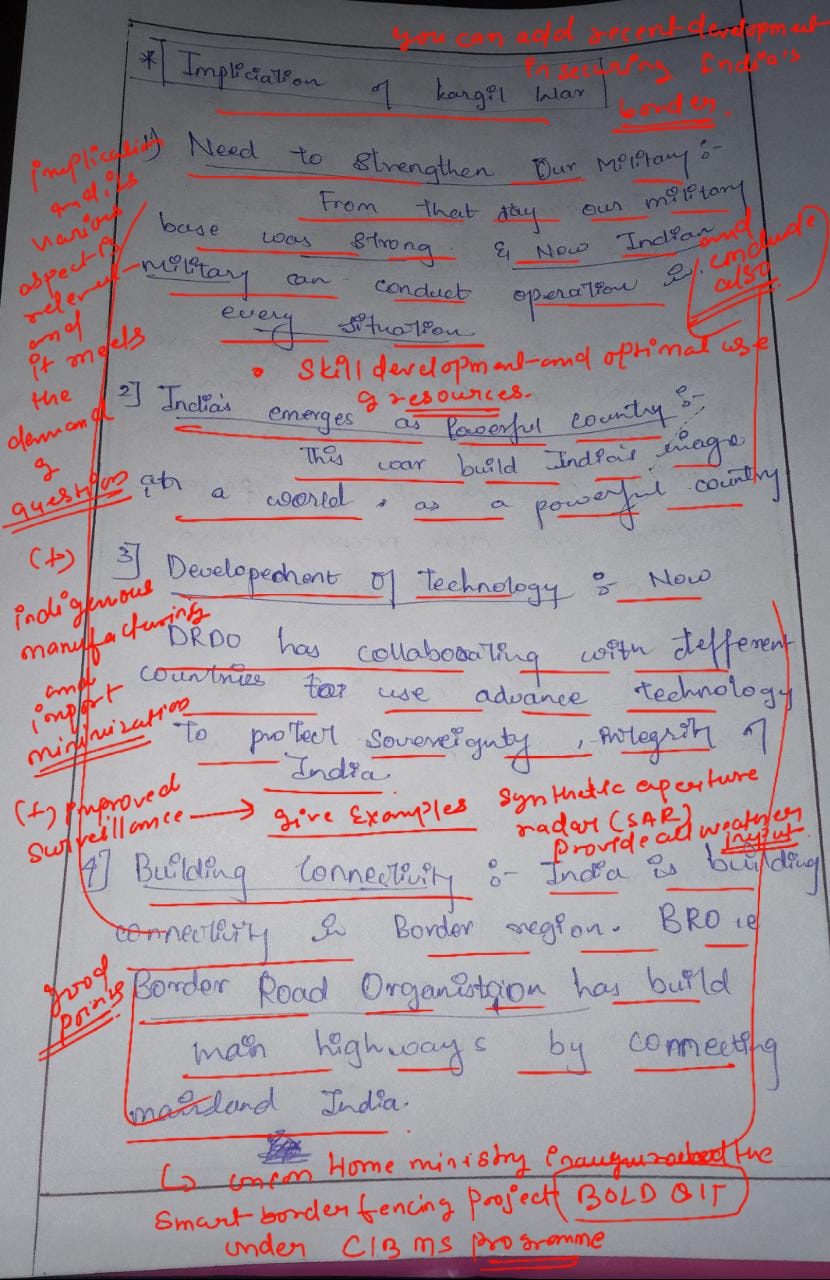 you can add recent development
in securing India's
border.
* Impliciation of kargil War
implication
and its
various
aspect is
relevent
and
it meets
the
demand
of
question
1) Need to Strengthen Our Military :-
From that day our military
base was strong & Now Indian
military can conduct operation in
every situation
and
conclude
also
• Skill development and optimal use
of resources.
2] India's emerges as Powerful country :-
This war build India's image
at a world as a powerful country
(+)
indigenous
manufacturing
and
import
minimization
3] Developement Of Technology :- Now
DRDO has collaborating with defferent
countries for use advance technology
To protect Sovereignty, integrity of
India.
(+) improved
surveillance → give Examples
synthetic aperture
radar (SAR)
Provide all weather
input.
4] Building Connectivity :- India is building
connectivity in Border region. BRO ie
Border Road Organistaion has build
main highways by connecting
mainland India.
good
points
↳ union Home ministry inaugurated the
Smart border fencing project BOLD QIT
under CIBMS programme